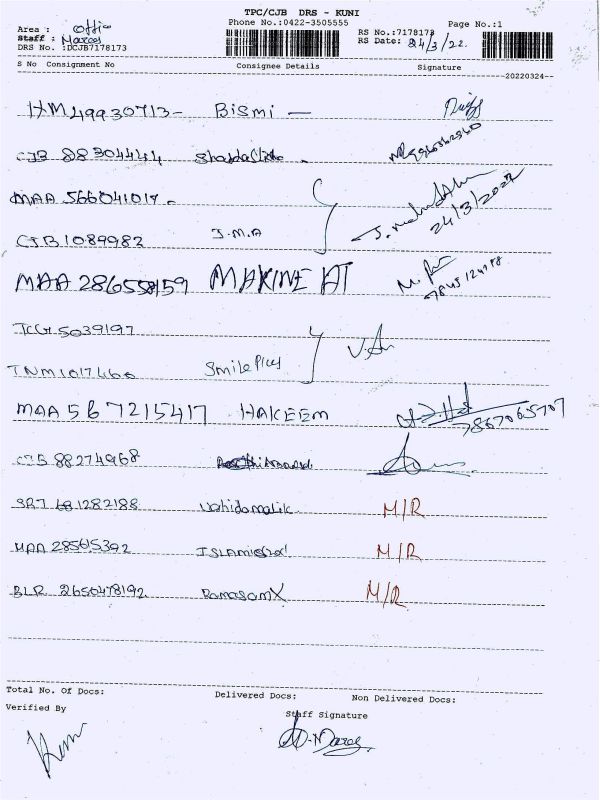 TPC/CJB DRS - KUNI
Phone No.:0422-3505555 Page No.:1
Area : Office
Staff :
DRS No. :DCJB7178173
RS No.:7178173
RS Date: 24/3/22.
S No Consignment No Consignee Details Signature
20220324
HM49930713- Bismi -
CJB 88304444
MAA 566041017.
24/3/2022
CJB1089982 J.M.A
MAA 286558159 MAKINE AT
TCG 5039197
TNM1017466 Smile Plus
MAA 567215417 HAKEEM
7867065707
CJB 88274968
SRT 681282188 Wahidamalik M/R
MAA 28565392 M/R
BLR 2650478192 M/R
Total No. Of Docs: Delivered Docs: Non Delivered Docs:
Verified By Staff Signature